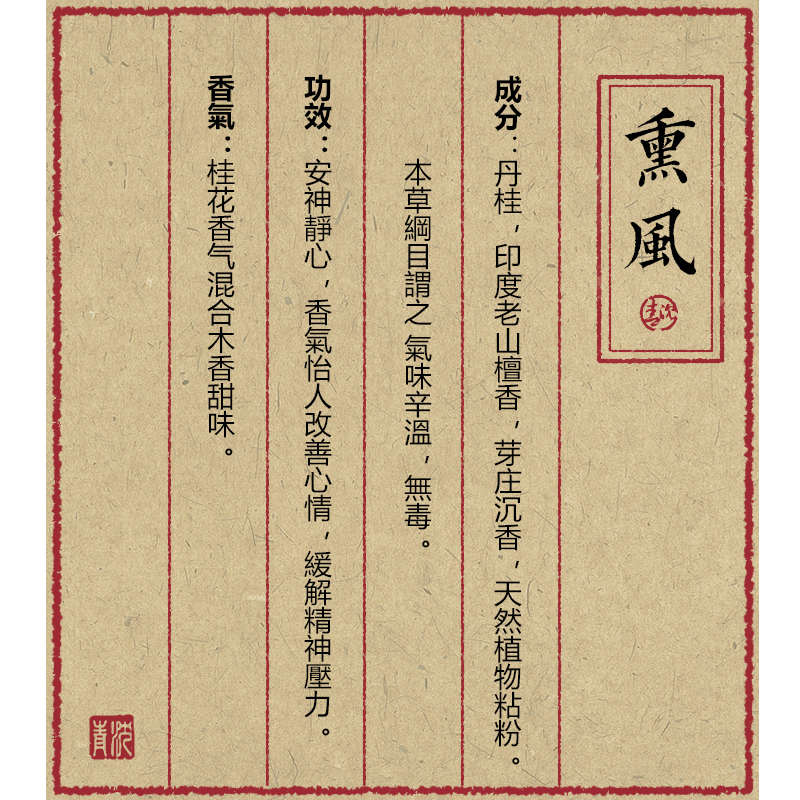 熏風
成分：丹桂，印度老山檀香，芽庄沉香，天然植物粘粉。
本草綱目謂之 氣味辛溫，無毒。
功效：安神靜心，香氣怡人改善心情，緩解精神壓力。
香氣：桂花香气混合木香甜味。